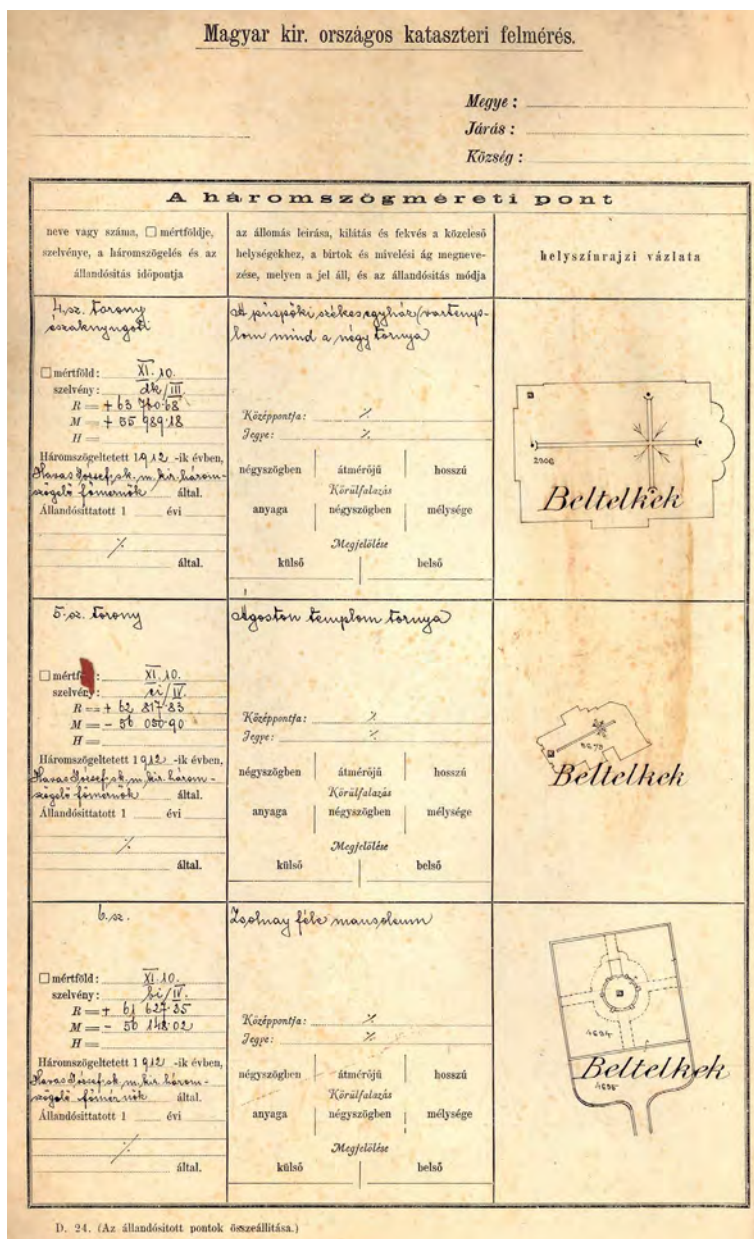 Magyar kir. országos kataszteri felmérés.
Megye :
Járás :
Község :
A háromszögméreti pont
neve vagy száma, □ mértföldje,
szelvénye, a háromszögelés és az
állandósítás időpontja
az állomás leirása, kilátás és fekvés a közeleső
helységekhez, a birtok és mivelési ág megneve-
zése, melyen a jel áll, és az állandósitás módja
helyszínrajzi vázlata
4. sz. torony
északnyugoti
□ mértföld : XI. 10.
szelvény : dk/III.
R = + 63 760·68
M = + 55 989·18
H =
Háromszögeltetett 1912 -ik évben,
Havas József, sk. m. kir. három-
szögelő főmérnök által.
Állandósíttatott 1 évi
·/.
által.
A püspöki székesegyház (vártemp-
lom mind a négy tornya
Középpontja : ·/.
Jegye : ·/.
négyszögben átmérőjű hosszú
Körülfalazás
anyaga négyszögben mélysége
Megjelölése
külső belső
2906
Beltelkek
5. sz. torony
□ mértföld : XI. 10.
szelvény : ci/IV.
R = + 62 817·83
M = - 56 050·90
H =
Háromszögeltetett 1912 -ik évben,
Havas József, sk. m. kir. három-
szögelő főmérnök által.
Állandósittatott 1 évi
·/.
által.
Ágoston templom tornya
Középpontja : ·/.
Jegye : ·/.
négyszögben átmérőjű hosszú
Körülfalazás
anyaga négyszögben mélysége
Megjelölése
külső belső
Beltelkek
6. sz.
□ mértföld : XI. 10.
szelvény : bi/IV.
R = + 61 627·35
M = - 56 148·02
H =
Háromszögeltetett 1912 -ik évben,
Havas József, sk. m. kir. három-
szögelő főmérnök által.
Állandósíttatott 1 évi
·/.
által.
Zsolnay féle mausoleum
Középpontja : ·/.
Jegye : ·/.
négyszögben átmérőjű hosszú
Körülfalazás
anyaga négyszögben mélysége
Megjelölése
külső belső
4694
Beltelkek
4695
D. 24. (Az állandósított pontok összeállitása.)